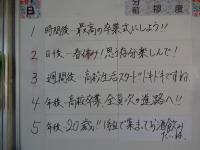 日
1 時間後…最高の卒業式にしよう!!
2 日後…春休み!思う存分楽しんで!
3 週間後…高校生活スタート!ドキドキですね。
4 年後…高校卒業。全員次の進路へ!!
5 年後…20歳!!1組で集まってお酒飲み
たいね。